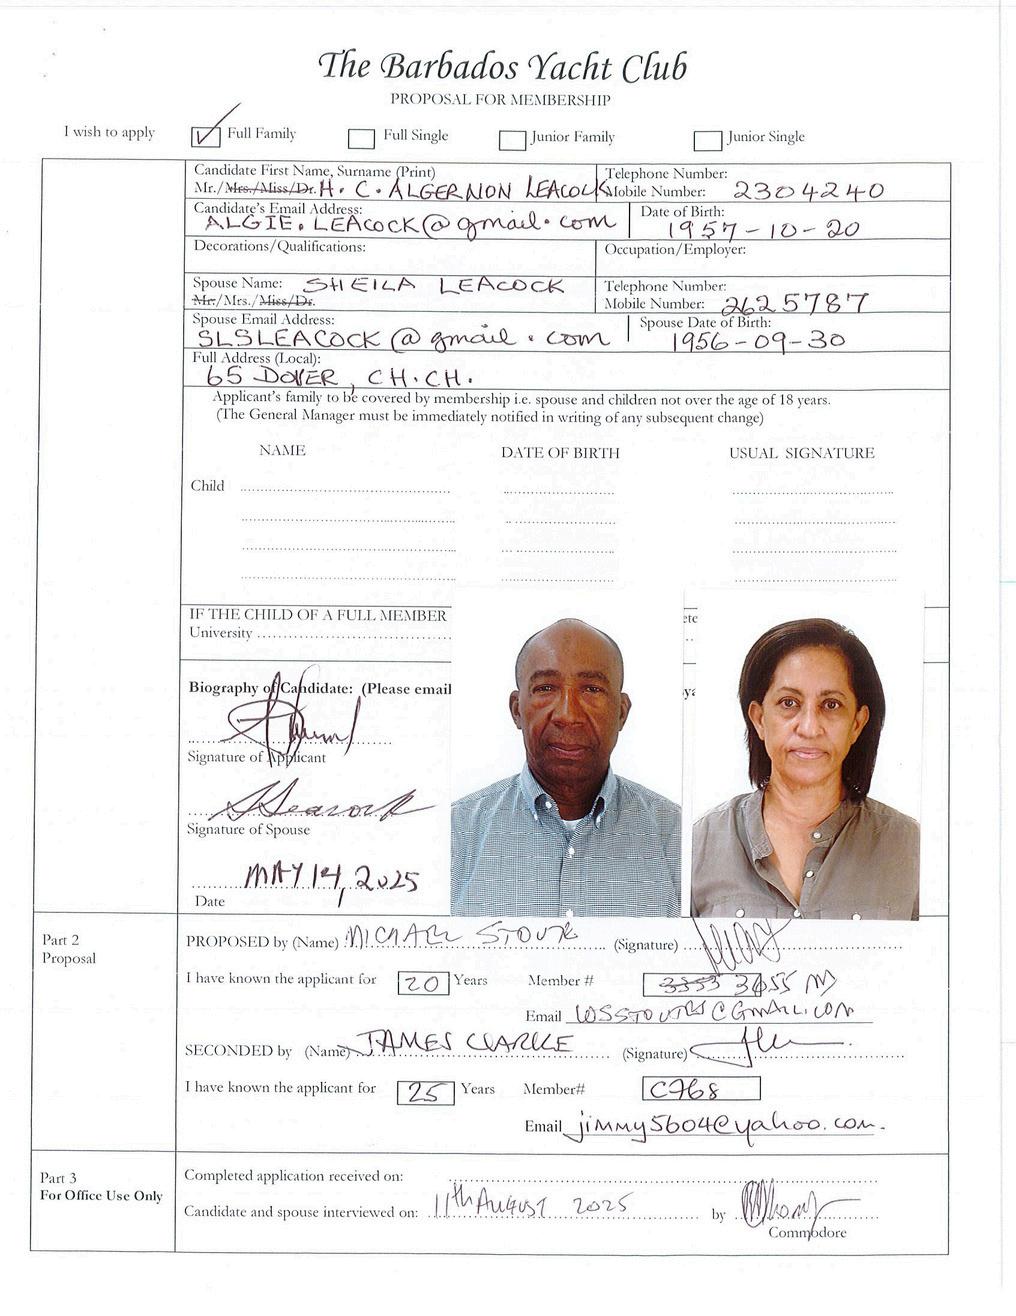 The Barbados Yacht Club
PROPOSAL FOR MEMBERSHIP
I wish to apply Full Family Full Single Junior Family Junior Single
Candidate First Name, Surname (Print) Telephone Number:
Mr./Mrs./Miss/Dr. H. C. ALGERNON LEACOCK Mobile Number: 2304240
Candidate's Email Address: Date of Birth:
ALGIE.LEACOCK@gmail.com 1957-10-20
Decorations/Qualifications: Occupation/Employer:
Spouse Name: SHEILA LEACOCK Telephone Number:
Mr./Mrs./Miss/Dr. Mobile Number: 2625787
Spouse Email Address: Spouse Date of Birth:
SLSLEACOCK@gmail.com 1956-09-30
Full Address (Local):
65 DOVER, CH.CH.
Applicant's family to be covered by membership i.e. spouse and children not over the age of 18 years.
(The General Manager must be immediately notified in writing of any subsequent change)
NAME DATE OF BIRTH USUAL SIGNATURE
Child
IF THE CHILD OF A FULL MEMBER
University
Biography of Candidate: (Please email
Signature of Applicant
SLeacock
Signature of Spouse
MAY 14, 2025
Date
Part 2
Proposal
PROPOSED by (Name) MICHAEL STOUTE (Signature)
I have known the applicant for 20 Years Member # 3353 3455 M
Email
SECONDED by (Name) JAMES CLARKE (Signature)
I have known the applicant for 25 Years Member# C768
Email jimmy5604@yahoo.com.
Part 3
For Office Use Only
Completed application received on:
Candidate and spouse interviewed on: 11th AUGUST 2025 by
Commodore